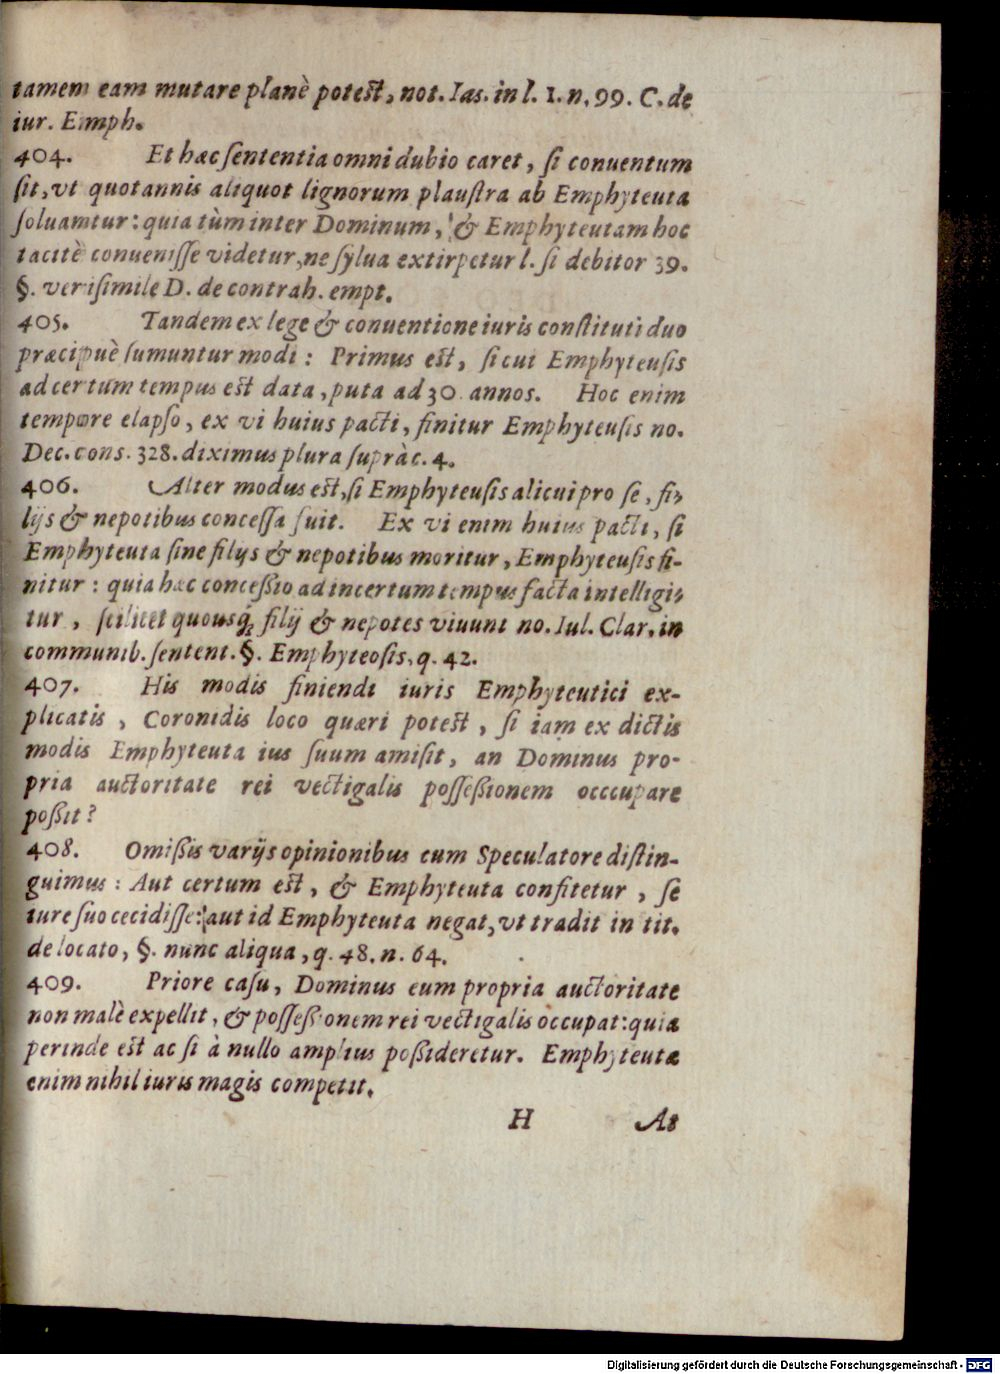 tamem eam mutare planè potest, not. Ias. in l. 1. n. 99. C. de
iur. Emph.
404. Et hæc sententia omni dubio caret, si conuentum
sit, vt quotannis aliquot lignorum plaustra ab Emphyteuta
soluantur: quia tùm inter Dominum, & Emphyteutam hoc
tacitè conuenisse videtur, ne sylua extirpetur l. si debitor 39.
§. verisimile D. de contrah. empt.
405. Tandem ex lege & conuentione iuris constituti duo
præcipuè sumuntur modi: Primus est, si cui Emphyteusis
ad certum tempus est data, puta ad 30 annos. Hoc enim
tempore elapso, ex vi huius pacti, finitur Emphyteusis no.
Dec. cons. 328. diximus plura suprà c. 4.
406. Alter modus est, si Emphyteusis alicui pro se, fi-
lijs & nepotibus concessa fuit. Ex vi enim huius pacti, si
Emphyteuta sine filijs & nepotibus moritur, Emphyteusis fi-
nitur: quia hæc concessio ad incertum tempus facta intelligi-
tur, scilicet quousq; filij & nepotes viuunt no. Iul. Clar. in
communib. sentent. §. Emphyteosis, q. 42.
407. His modis finiendi iuris Emphyteutici ex-
plicatis, Coronidis loco quæri potest, si iam ex dictis
modis Emphyteuta ius suum amisit, an Dominus pro-
pria auctoritate rei vectigalis possessionem occcupare
possit?
408. Omissis varijs opinionibus cum Speculatore distin-
guimus: Aut certum est, & Emphyteuta confitetur, se
iure suo cecidisse: aut id Emphyteuta negat, vt tradit in tit.
de locato, §. nunc aliqua, q. 48. n. 64.
409. Priore casu, Dominus eum propria auctoritate
non malè expellit, & possessionem rei vectigalis occupat: quia
perinde est ac si à nullo amplius possideretur. Emphyteutæ
enim nihil iuris magis competit.
H At
Digitalisierung gefördert durch die Deutsche Forschungsgemeinschaft - DFG